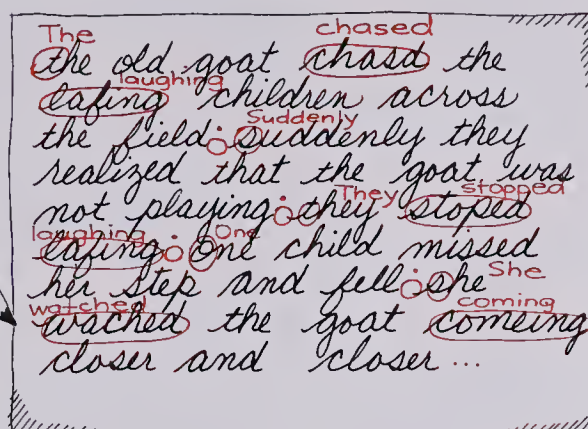 The chased
the old goat chasd the
laughing
lafing children across
Suddenly
the field. suddenly they
realized that the goat was
They stopped
not playing. they stoped
laughing One
lafing. one child missed
her step and fell. she She
watched coming
wached the goat comeing
closer and closer ...